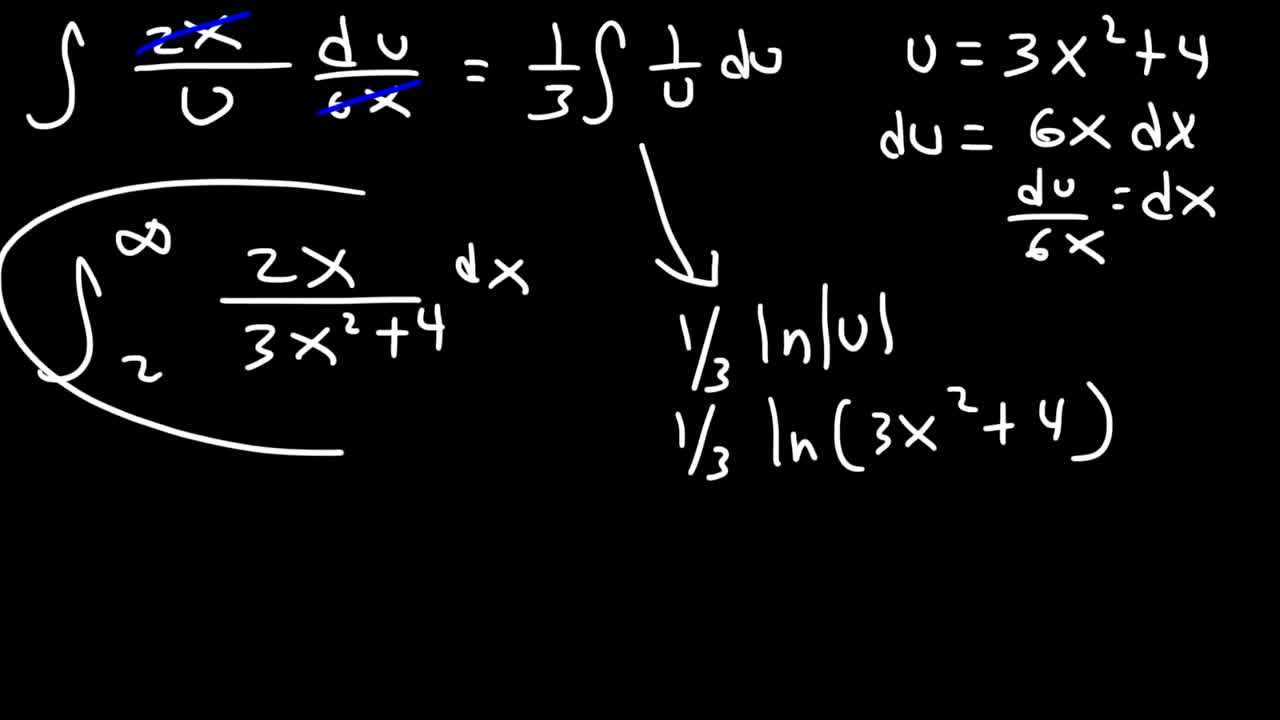 ∫ 2x/u du/6x = 1/3 ∫ 1/u du
u = 3x² + 4
du = 6x dx
du/6x = dx
∫₂^∞ 2x/(3x² + 4) dx
1/3 ln|u|
1/3 ln(3x² + 4)